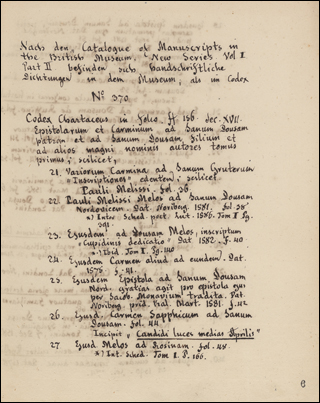 Nach dem Catalogue of Manuscripts in
the British Museum, New Series Vol I
Part II befinden sich handschriftliche
Dichtungen in dem Museum, als im Codex
No 370
Codex Chartaceus in folio ff 156 Sec. XVII.
Epistolarum et Carminum ad Janum Dousam
patrem et ad Janum Dousam filium et
ad alios magni nominis autores tomus
primus; scilicet,
21. Variorum Carmina ad Janum Gruterum
"Inscriptiones" edentem; scilicet
Pauli Melissi. fol 36.
22. Pauli Melissi Melos ad Janum Dousam
Nordovicem. Dat. Noriberg. 1581. fol. 38
*) Inter Sched. poet. Lut. 1586. Tom II Pg.
23. Ejusdem ad Dousam Melos, inscriptum
"Cupidinis dedicatio" Dat 1582. f. 40
*) Ibid. Tom II. Pg. 140
24. Ejusdem Carmen aliud ad eundem. Dat.
1575 f. 41.
25. Ejusdem Epistola ad Janum Dousam
Nord. gratias agit pro epistola qui
per Jacob Monavium tradita. Dat.
Noribg prid. Kal. Mart. 1581. f. 42
26. Ejusd. Carmen Sapphicum ad Janum
Dousam. fol. 44
Incipit "Candidi luces medias Aprilis"
27 Ejusd Melos ad Rosinam. fol 45
*) Int. Sched. Tom I. P. 166.
6